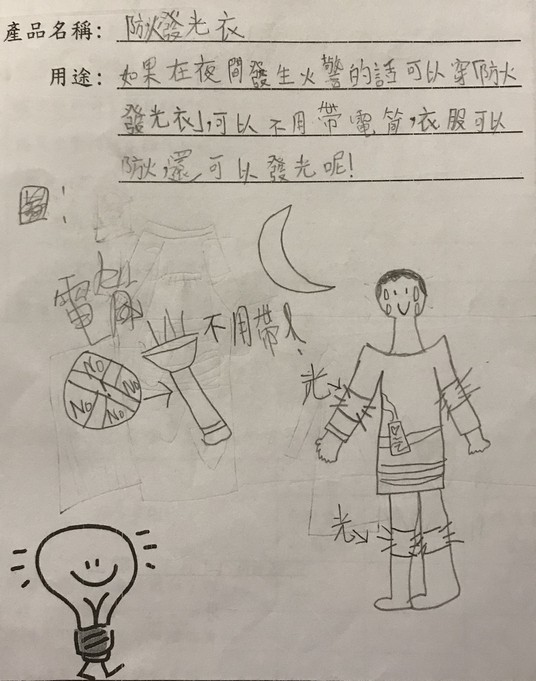 產品名稱: 防火發光衣
用途: 如果在夜間發生火警的話可以穿「防火
發光衣」,可以不用帶電筒,衣服可以
防火,還可以發光呢!
圖:
電筒
不用帶!
No
No
No
No
光
光